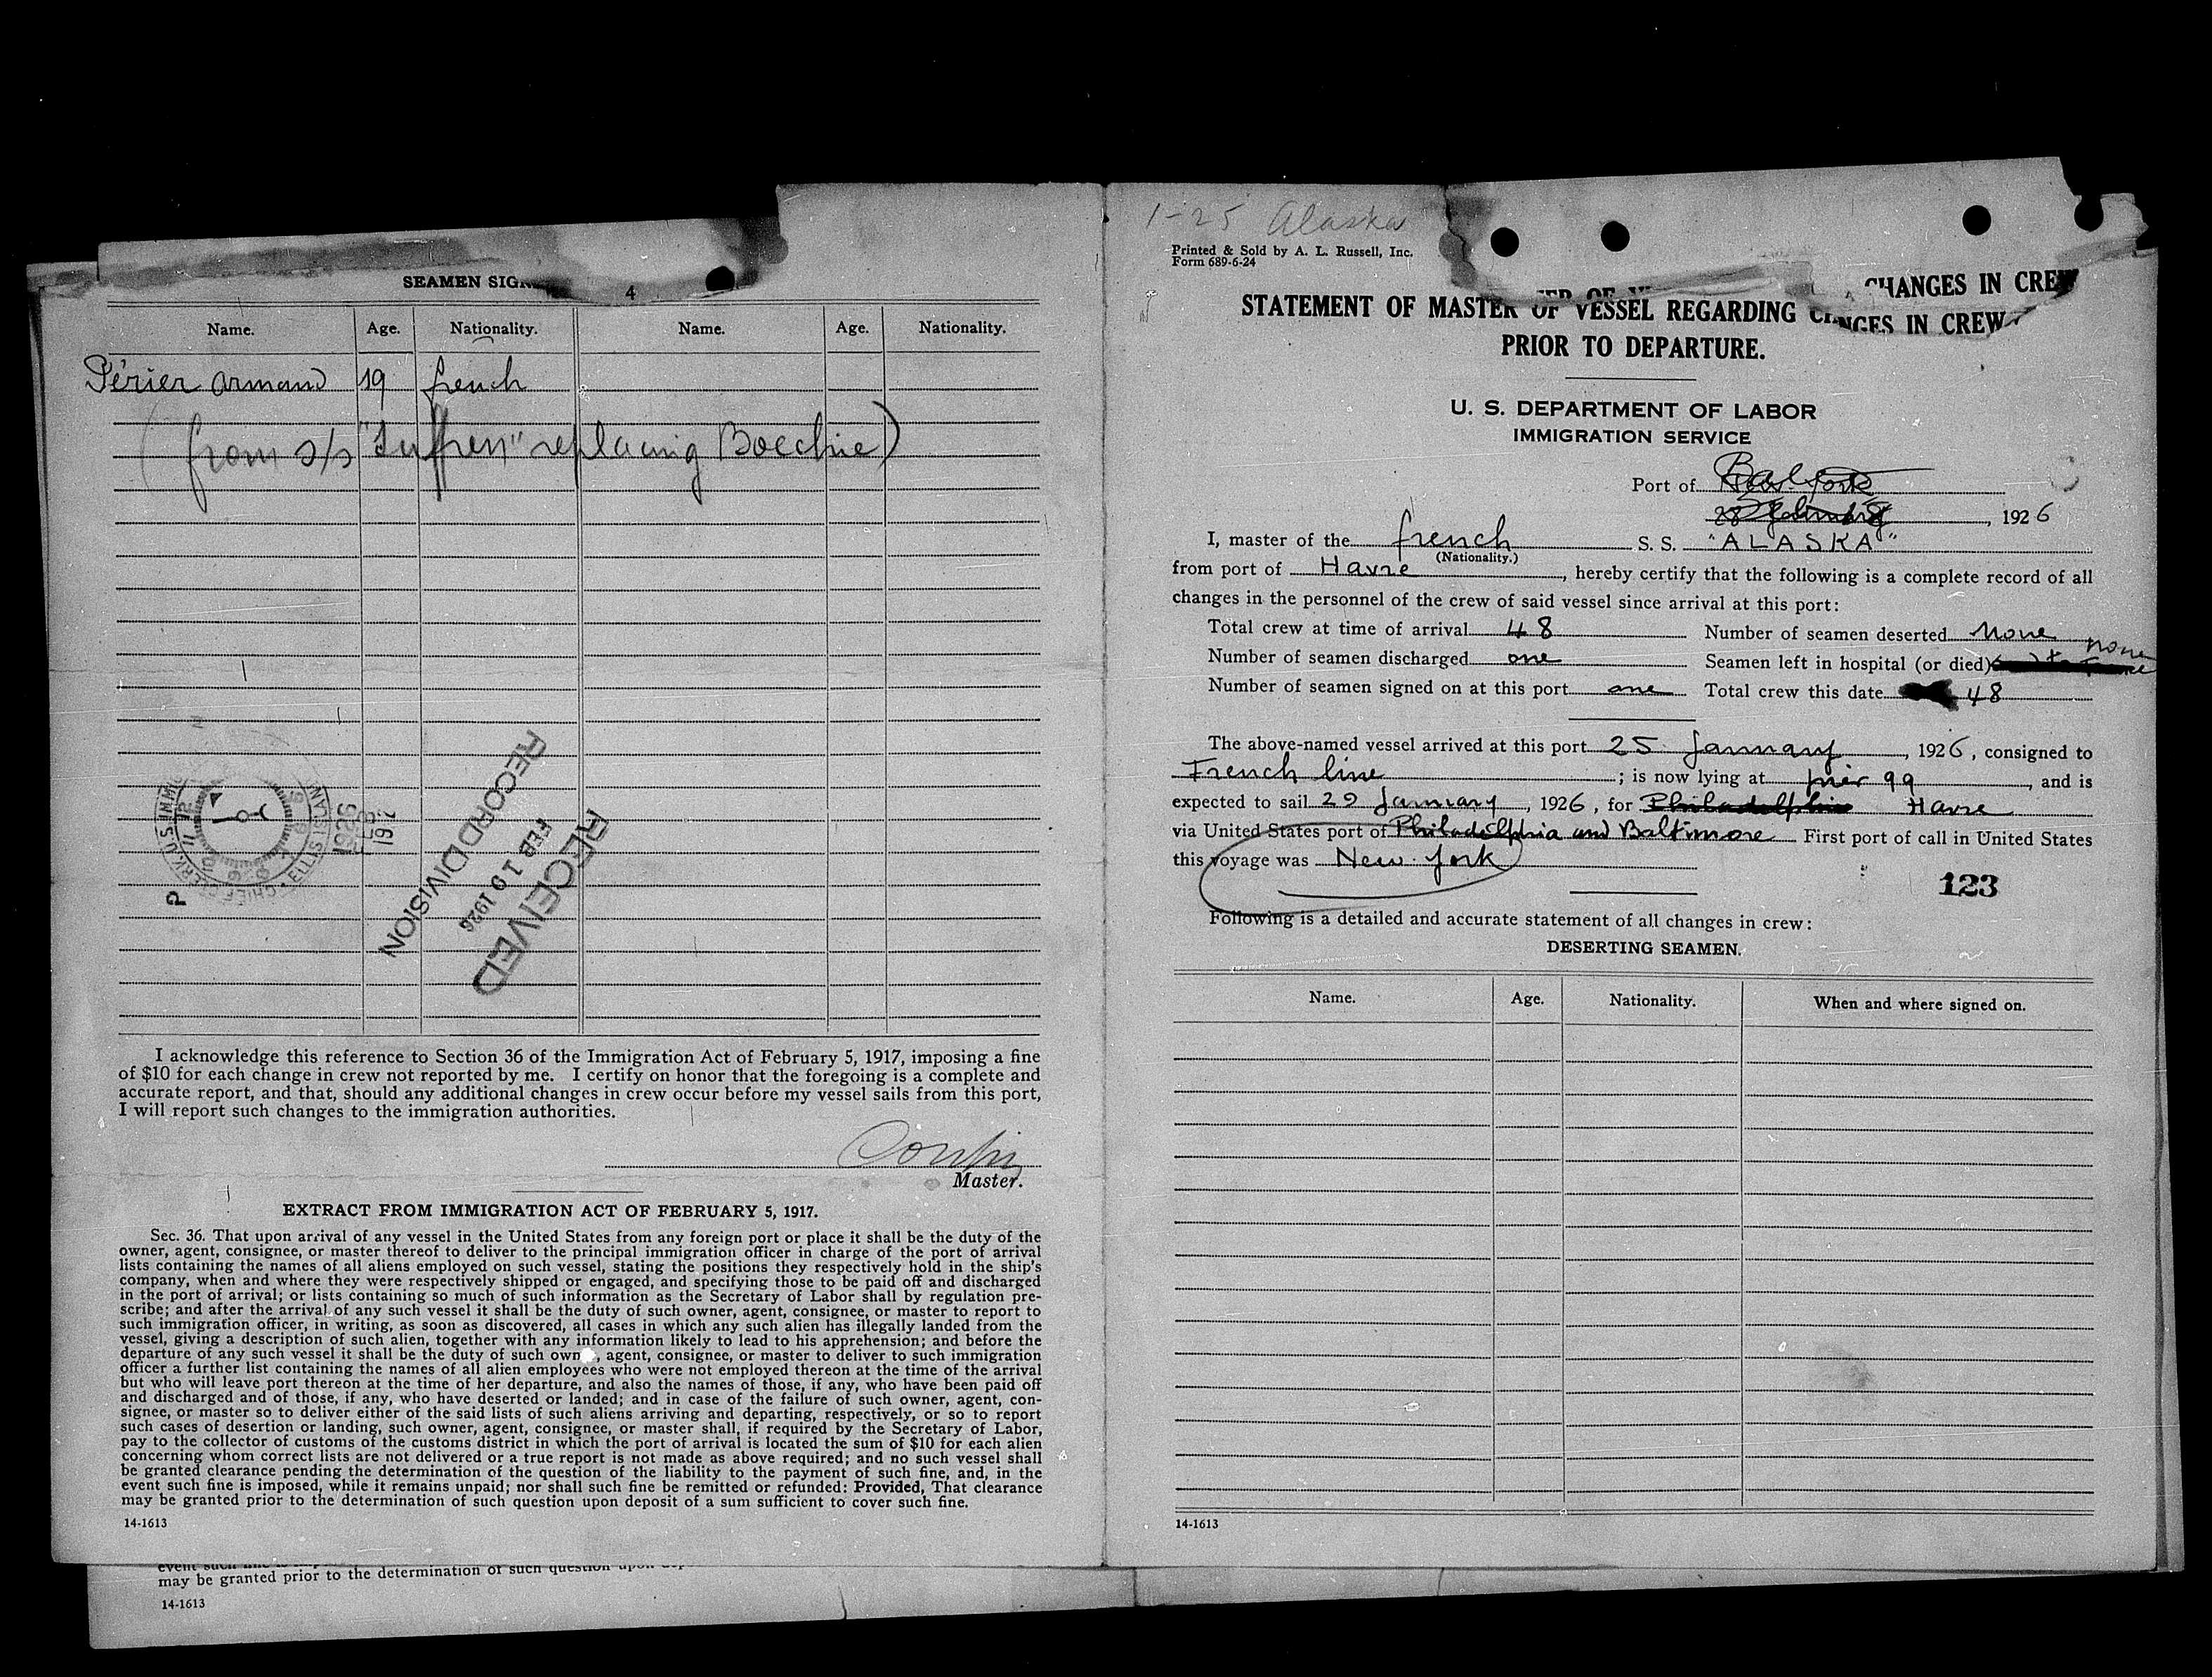 SEAMEN SIGN
4
Name. Age. Nationality. Name. Age. Nationality.
Périer Armand 19 french
(from s/s "Suffren" replacing Boechie)
RECEIVED
FEB 19 1926
RECORD DIVISION
I acknowledge this reference to Section 36 of the Immigration Act of February 5, 1917, imposing a fine
of $10 for each change in crew not reported by me. I certify on honor that the foregoing is a complete and
accurate report, and that, should any additional changes in crew occur before my vessel sails from this port,
I will report such changes to the immigration authorities.
Master.
EXTRACT FROM IMMIGRATION ACT OF FEBRUARY 5, 1917.
Sec. 36. That upon arrival of any vessel in the United States from any foreign port or place it shall be the duty of the
owner, agent, consignee, or master thereof to deliver to the principal immigration officer in charge of the port of arrival
lists containing the names of all aliens employed on such vessel, stating the positions they respectively hold in the ship's
company, when and where they were respectively shipped or engaged, and specifying those to be paid off and discharged
in the port of arrival; or lists containing so much of such information as the Secretary of Labor shall by regulation pre-
scribe; and after the arrival of any such vessel it shall be the duty of such owner, agent, consignee, or master to report to
such immigration officer, in writing, as soon as discovered, all cases in which any such alien has illegally landed from the
vessel, giving a description of such alien, together with any information likely to lead to his apprehension; and before the
departure of any such vessel it shall be the duty of such own , agent, consignee, or master to deliver to such immigration
officer a further list containing the names of all alien employees who were not employed thereon at the time of the arrival
but who will leave port thereon at the time of her departure, and also the names of those, if any, who have been paid off
and discharged and of those, if any, who have deserted or landed; and in case of the failure of such owner, agent, con-
signee, or master so to deliver either of the said lists of such aliens arriving and departing, respectively, or so to report
such cases of desertion or landing, such owner, agent, consignee, or master shall, if required by the Secretary of Labor,
pay to the collector of customs of the customs district in which the port of arrival is located the sum of $10 for each alien
concerning whom correct lists are not delivered or a true report is not made as above required; and no such vessel shall
be granted clearance pending the determination of the question of the liability to the payment of such fine, and, in the
event such fine is imposed, while it remains unpaid; nor shall such fine be remitted or refunded: Provided, That clearance
may be granted prior to the determination of such question upon deposit of a sum sufficient to cover such fine.
14-1613
may be granted prior to the determination of such question upon
14-1613
1-25 Alaska
Printed & Sold by A. L. Russell, Inc.
Form 689-6-24
CHANGES IN CREW
STATEMENT OF MASTER OF VESSEL REGARDING CHANGES IN CREW
PRIOR TO DEPARTURE.
U. S. DEPARTMENT OF LABOR
IMMIGRATION SERVICE
Port of
28 , 1926
I, master of the french S. S. "ALASKA"
(Nationality.)
from port of Havre, hereby certify that the following is a complete record of all
changes in the personnel of the crew of said vessel since arrival at this port:
Total crew at time of arrival 48 Number of seamen deserted None
Number of seamen discharged one Seamen left in hospital (or died) none
Number of seamen signed on at this port one Total crew this date 48
The above-named vessel arrived at this port 25 January, 1926, consigned to
French line; is now lying at pier 99, and is
expected to sail 29 January, 1926, for Philadelphia Havre
via United States port of Philadelphia and Baltimore First port of call in United States
this voyage was New York
123
Following is a detailed and accurate statement of all changes in crew:
DESERTING SEAMEN.
Name. Age. Nationality. When and where signed on.
14-1613